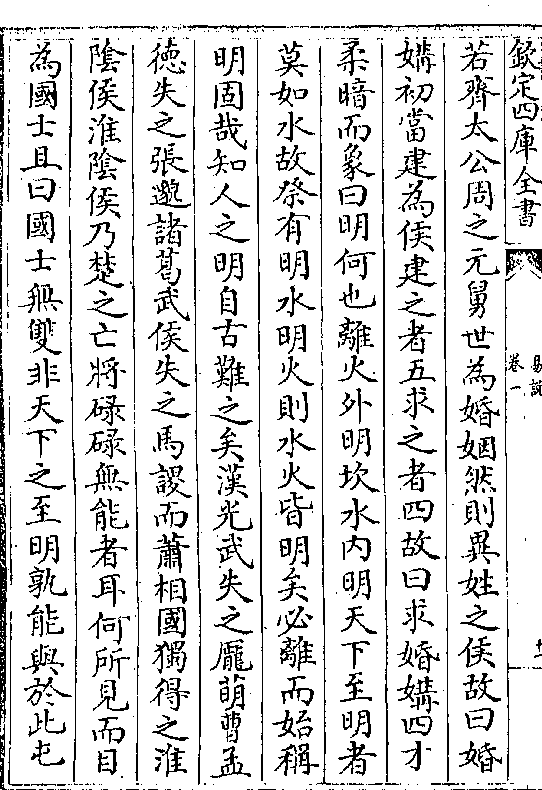 欽定四庫全書
易說
卷一
若齊太公周之元舅世為婚姻然則異姓之侯故曰婚
媾初當建為侯建之者五求之者四故曰求婚媾四才
柔暗而象曰明何也離火外明坎水内明天下至明者
莫如水故祭有明水明火則水火皆明矣必離而始稱
明固哉知人之明自古難之矣漢光武失之龐萌曹孟
徳失之張邈諸葛武侯失之馬謖而蕭相國獨得之淮
陰侯淮陰侯乃楚之亡將碌碌無能者耳何所見而目
為國士且曰國士無雙非天下之至明孰能與於此屯